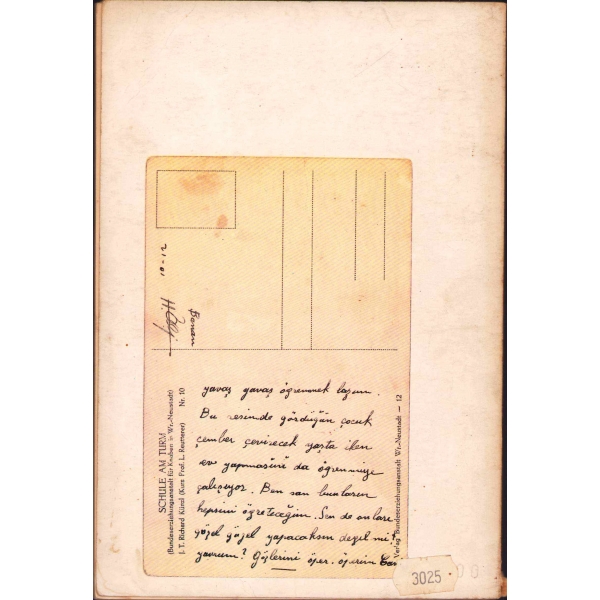 yavaş yavaş öğrenmek lazım.
Bu resimde gördüğün çocuk
çember çevirecek yaşta iken
ev yapmasını da öğrenmeye
çalışıyor. Ben san bunların
hepsini öğreteceğim. Sen de onları
güzel güzel yapacaksın değil mi?
yavrum? Gözlerini öper, öperim
Banan
21-
SCHULE AM TURM
(Bundeserziehungsanstalt für Knaben in Wr.-Neustadt)
J. T. Richard Künzl (Kurs Prof. L. Reumerei) Nr. 10
Verlag Bundeserziehungsanstalt Wr.-Neustadt — 12
3025